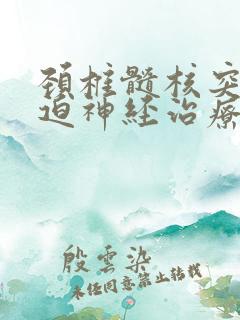 頚椎髓核突
迫神经治療
殷雲染
未经同意禁止转载